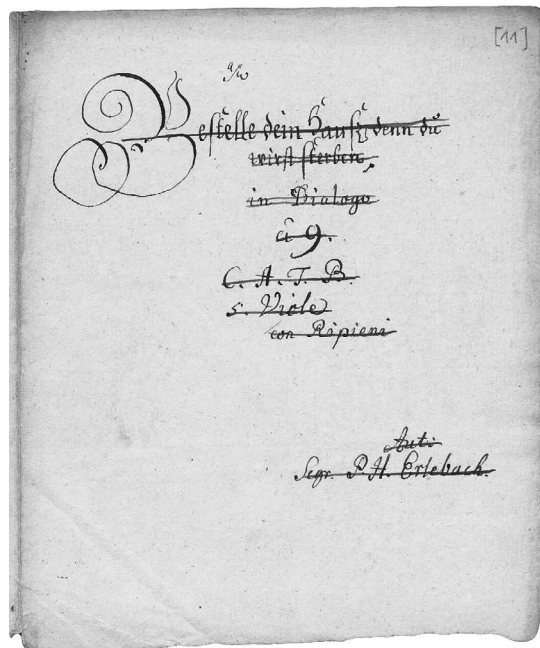 [11]
Bestelle dein Hauß, denn du
wirst sterben,
in Dialogo
â 9.
C. A. T. B.
5. Viole
con Ripieni
Aut:
Sigr. P. H. Erlebach.